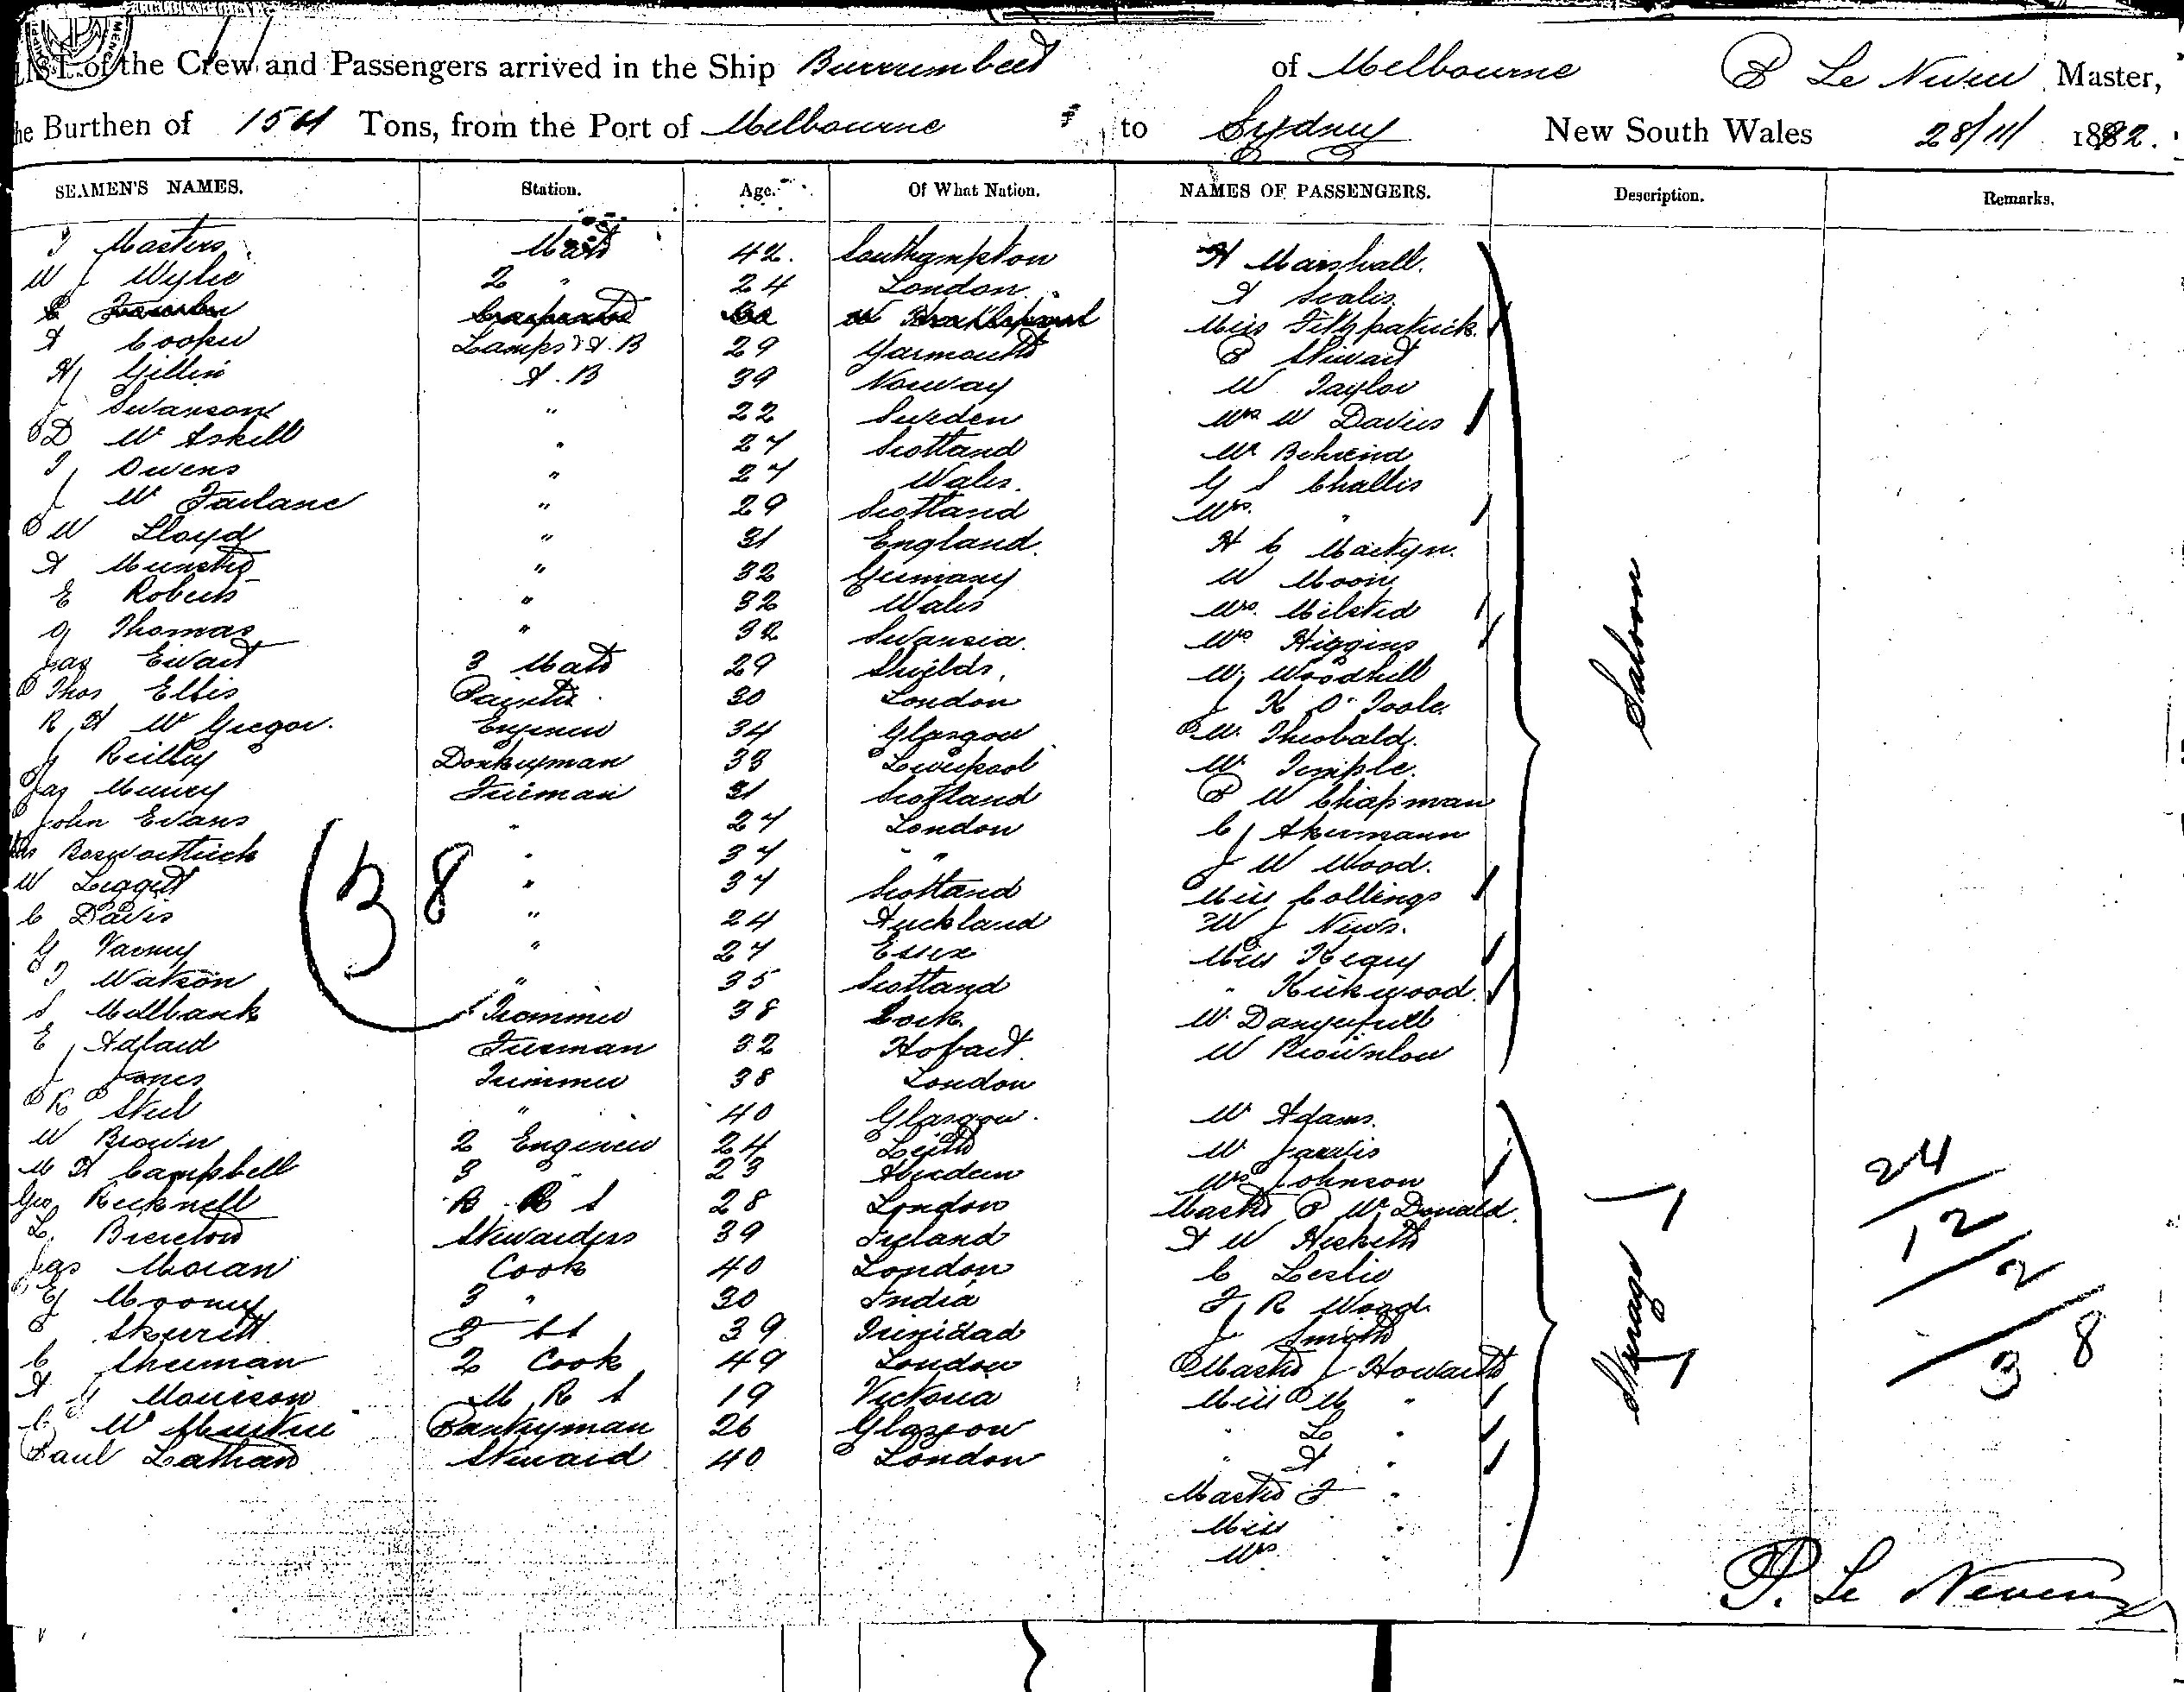 LIST of the Crew and Passengers arrived in the Ship Burrumbeet of Melbourne P Le Neveu Master,
the Burthen of Tons, from the Port of Melbourne to Sydney New South Wales 28/11/ 1892.
SEAMEN'S NAMES. Station. Age. Of What Nation. NAMES OF PASSENGERS. Description. Remarks.
T Masters Mate 42. Southampton H Marshall.
W J Wylie 2 " 24 London A Scalis
Miss Fitzpatrick
A Cooper Lamps & A.B 29 Yarmouth P Stewart
H Gillin A.B 39 Norway W Taylor
J Swanson " 22 Sweden Mrs W Davies
D Mc Askill " 27 Scotland Mr Behrend
T Owens " 27 Wales. G S Challis
J Mc Farlane " 29 Scotland Mrs. "
W Lloyd " 31 England. H C Martyn.
A " 32 Germany W Moon
E Roberts " 32 Wales Mrs. Milsted
G Thomas " 32 Swansea. Mrs Higgins
Jas Ewart 3 Mate 29 Shields. W. Woodhill
Thos Ellis Painter 30 London J K O'Toole.
R A Mc Gregor. Engineer 34 Glasgow W. Theobald.
J Reilly Donkeyman 33 Liverpool W Temple.
Jas Murray Fireman 31 Scotland P W Chapman
John Evans " 27 London C J Akermann
" 37 " J W Wood.
W Leggett " 37 Scotland Miss Collings
C Davis " 24 Auckland W J News.
G Varney " 27 Essex Miss Keary
T Watson " 35 Scotland " Kirkwood.
S Millbank Trimmer 38 Cork. W. Dangerfield
E Adlard Fireman 32 Hobart W Brownlow
J Jones Trimmer 38 London
R Steel " 40 Glasgow. W Adams.
W Brown 2 Engineer 24 Leith W Jarvis
M A Campbell 3 " 23 Aberdeen Mrs Johnson
Geo Recknell B R S 28 London Master P McDonald.
L. Brereton Stewardess 39 Ireland A W Hesketh
Jas Moran Cook 40 London C Leslie
G Mooney 3 " 30 India F R Wood
Skerrett F S 39 Trinidad J Smith
C Sherman 2 Cook 49 London Master J Howarth
A G Morrison M R S 19 Victoria Miss M "
C Mc Pantryman 26 Glasgow " L "
Paul Latham Steward 40 London " A "
Master F "
Miss "
Mrs "
38
Saloon
Steerage
24
12
2
38
P. Le Neveu